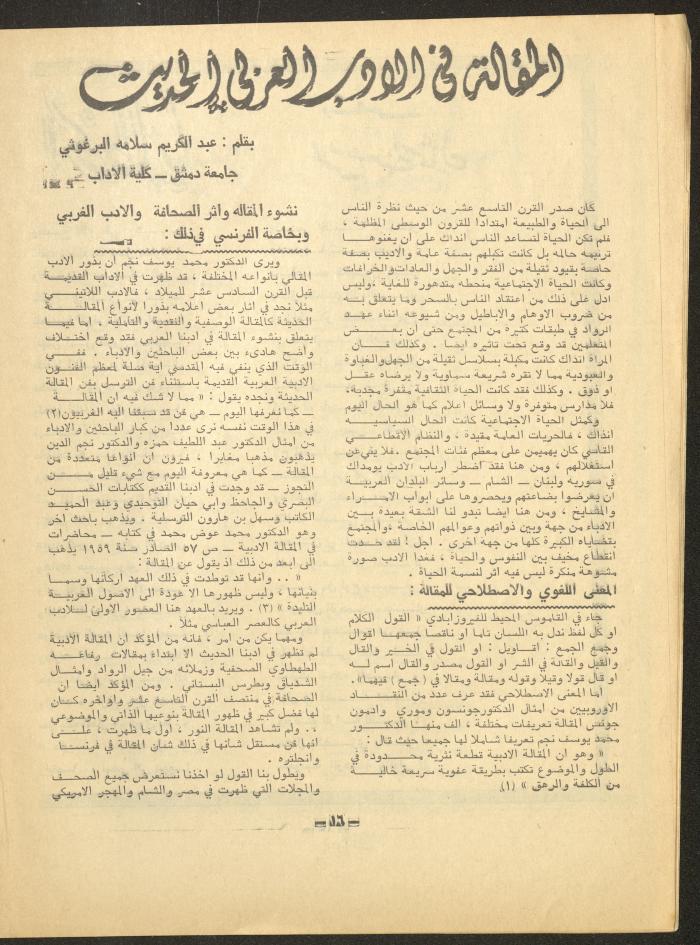 المقالة في الادب العربي الحديث
بقلم : عبد الكريم سلامه البرغوثي
جامعة دمشق ــ كلية الاداب
كان صدر القرن التاسع عشر من حيث نظرة الناس
الى الحياة والطبيعة امتدادا للقرون الوسطى المظلمة ،
فلم تكن الحياة لتساعد الناس انذاك على ان يغنوها
تربيهم حالمه بل كانت تكبلهم بصفة عامة والاديب بصفة
خاصة بقيود ثقيلة من الفقر والجهل والعادات والخرافات
وكانت الحياة الاجتماعية منحطه متدهورة للغاية ،وليس
ادل على ذلك من اعتقاد الناس بالسحر وما يتعلق به
من ضروب الاوهام والاباطيل ومن شيوعه اثناء عهد
الرواد في طبقات كثيرة من المجتمع حتى أن بعـــض
المتعلمين قد وقع تحت تاثيره ايضا . وكذلك فـــان
المراة انذاك كانت مكبلة بسلاسل ثقيلة من الجهل والغباوة
والعبودية مما لا تقره شريعه سماوية ولا يرضاه عقــل
او ذوق . وكذلك فقد كانت الحياة الثقافية مقفرة مجدبة،
فلا مدارس متوفرة ولا وسائل اعلام كما هو الحال اليوم
وكمثل الحياة الاجتماعية كانت الحال السياسيــه
انذاك ، فالحريات العامة مقيدة ، والنظام الاقطاعــي
القاسي كان يهيمن على معظم فئات المجتمع .فلا يني عن
استغلالهم ، ومن هنا فقد اضطر ارباب الادب يومذاك
في سوريه ولبنان ــ الشام ــ وسائر البلدان العربيــة
ان يعرضوا بضاعتهم ويحصروها على ابواب الامــراء
والمشايخ ، ومن هنا ايضا تبدو لنا الشقة بعيدة بــين
الادباء من جهة وبين ذواتهم وعوالمهم الخاصة ،والمجتمع
بقضاياه الكبيرة كلها من جهة اخرى . اجل ! لقد حدث
انقطاع مخيف بين النفوس والحياة ، فغدا الادب صورة
مشوهة منكرة ليس فيه اثر لنسمة الحياة .
المعنى اللغوي والاصطلاحي للمقالة :
جاء في القاموس المحيط للفيروزابادي « القول الكلام
او كل لفظ ندل به اللسان تاما او ناقصا جمعهــا اقوال
وجمع الجمع : اقاويل : او القول في الخير والقال
والقيل والقالة في الشر او القول مصدر والقال اسم لــه
او قال قولا وقيلا وقوله ومقالة ومقالا في ( جمع ) فيهما».
أما المعنى الاصطلاحي فقد عرف عدد من النقــاد
الاوروبيين من امثال الدكتورجونسون وموري وادمون
جونس المقالة تعريفات مختلفة ، الف منهــا الدكتــور
محمد يوسف نجم تعريفا شاملا لها جميعا حيث قال :
« وهو ان المقالة الادبية قطعة نثرية محــدودة في
الطول والموضوع تكتب بطريقة عفوية سريعة خاليــة
من الكلفة والرهق » (١)
نشوء المقاله واثر الصحافة والادب الغربي
وبخاصة الفرنسي في ذلك :
ويرى الدكتور محمد يوسف نجم أن بذور الادب
المقالي بانواعه المختلفة ، قد ظهرت في الاداب القديمــة
قبل القرن السادس عشر للميلاد ، فالادب اللاتينــي
مثلا نجد في اثار بعض اعلامه بذورا لانواع المقالــة
الحديثة كالمقالة الوصفية والنقدية والتاملية ، اما فيمــا
يتعلق بنشوء المقالة في ادبنا العربي فقد وقع اختــلاف
واضح هادىء بين بعض الباحثين والادباء . ففــي
الوقت الذي ينفي فيه المقدسي اية صلة لمعظم الفنــون
الادبية العربية القديمة باستثناء فن الترسل بفن المقالة
الحديثة ونجده يقول : « مما لا شك فيه ان المقالــة
ــ كما نعرفها اليوم ــ هي فن قد سبقنا اليه الغربيون(٢)
في هذا الوقت نفسه نرى عددا من كبار الباحثين والادباء
من امثال الدكتور عبد اللطيف حمزه والدكتور نجم الدين
يذهبون مذهبا مغايرا ، فيرون ان انواعا متعددة من
المقالة ــ كما هي معروفة اليوم مع شيء قليل مــن
التجوز ــ قد وجدت في ادبنا القديم ككتابات الحســن
البصري والجاحظ وابي حيان التوحيدي وعبد الحميــد
الكاتب وسهل بن هارون الترسلية . ويذهب باحث اخر
وهو الدكتور محمد عوض محمد في كتابه ــ محاضرات
في المقالة الادبية ــ ص ٥٧ الصادر سنة ١٩٥٩ يذهب
الى ابعد من ذلك اذ يقول عن المقالة :
« . . وانها قد توطدت في ذلك العهد اركانها وسمــا
بنيانها ، وليس ظهورها الا عودة الى الاصول العربيــة
التليدة » (٣) . ويريد بالعهد هنا العصور الاولى للادب
العربي كالعصر العباسي مثلا .
ومهما يكن من امر ، فانه من المؤكد ان المقالة الادبية
لم تظهر في ادبنا الحديث الا ابتداء بمقالات رفاعــه
الطهطاوي الصحفية وزملائه من جيل الرواد وامثــال
الشدياق وبطرس البستاني . ومن المؤكد ايضا ان
الصحافة في منتصف القرن التاسع عشر واواخره كــان
لها فضل كبير في ظهور المقالة بنوعيها الذاتي والموضوعي
. . ولم تشاهد المقالة النور ، اول ما ظهرت ، علــى
انها فن مستقل شانها في ذلك شان المقالة في فرنســا
وانجلتره .
ويطول بنا القول لو اخذنا نستعرض جميع الصحــف
والمجلات التي ظهرت في مصر والشام والمهجر الامريكي
ــ ١٦ ــ